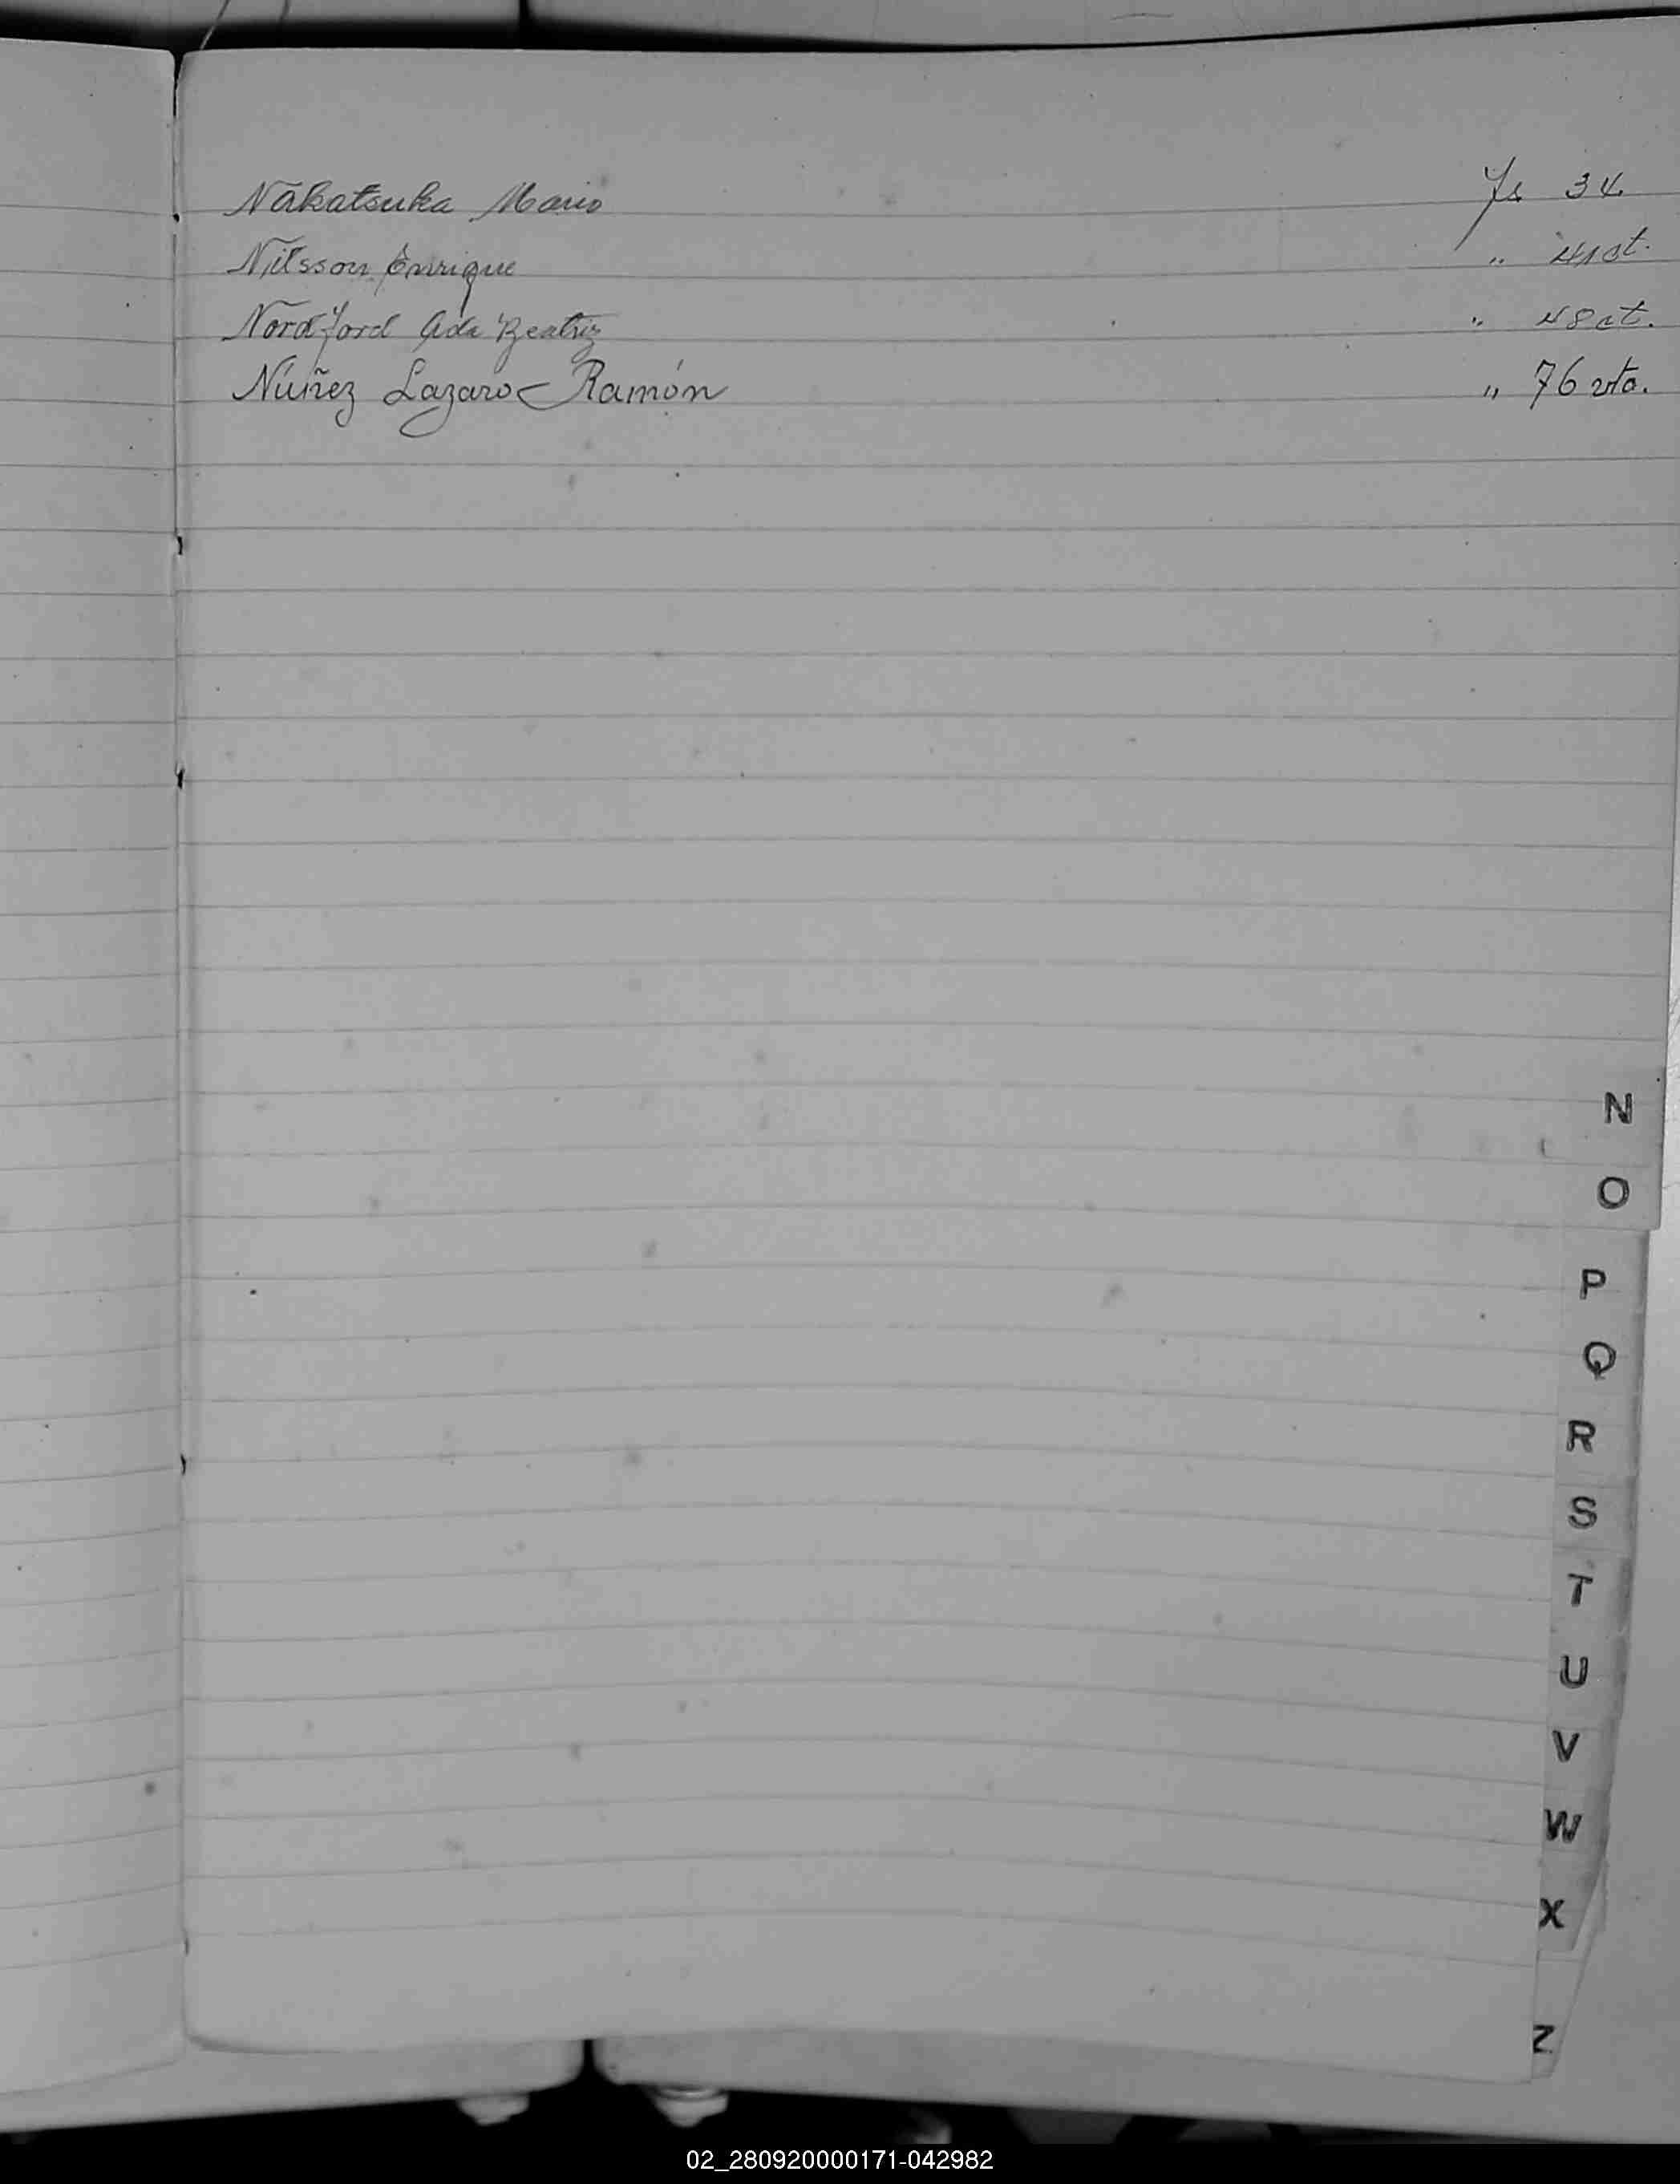 Nakatsuka Mario fs 34.
Nilsson Enrique " 41 ct.
Nordford Ada Beatriz " 48 ct.
Núñez Lazaro Ramón " 76 vto.
N
O
P
Q
R
S
T
U
V
W
X
Z
02_280920000171-042982